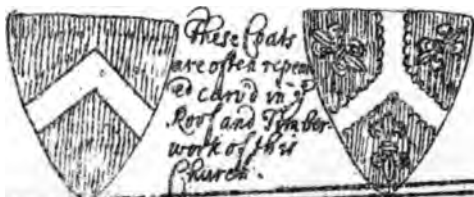 These Coats
are often repeat
ed carv'd in yͤ
Roof and Tymber
work of this
Church.